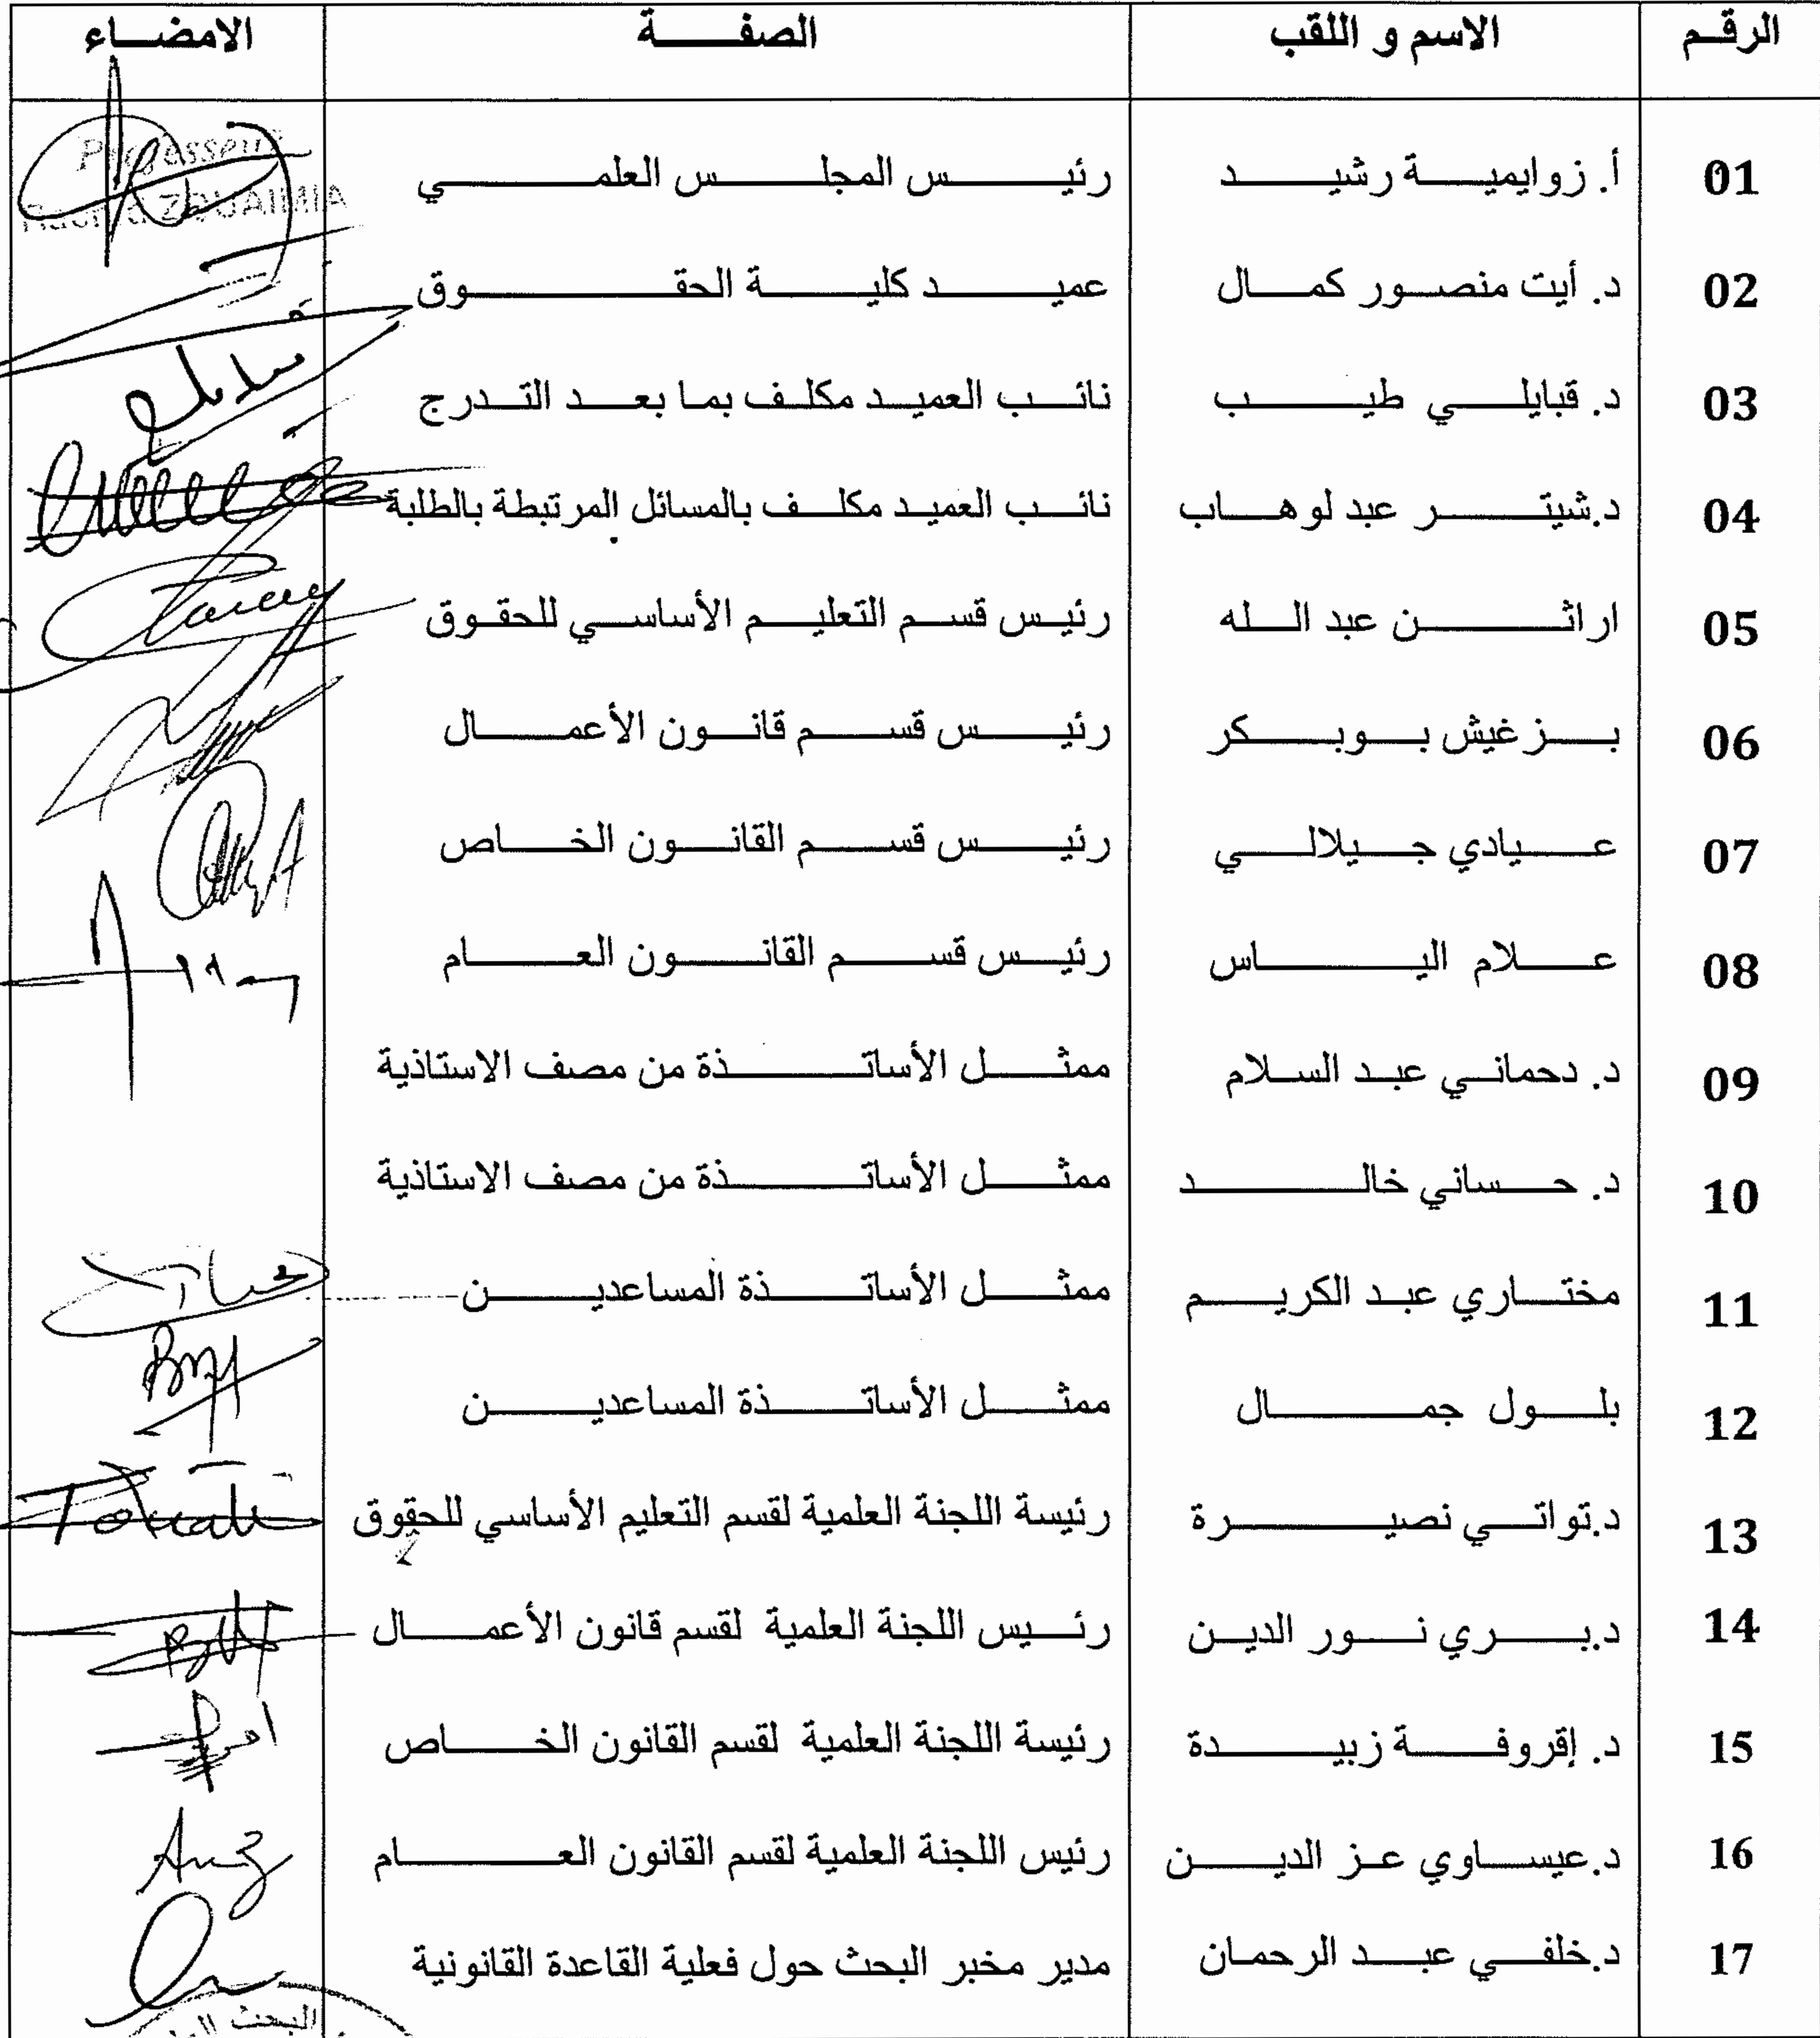 الرقم الاسم و اللقب الصفة الامضاء
01 أ. زوايمية رشيد رئيس المجلس العلمي Professeur Rachid ZOUAIMIA
02 د. أيت منصور كمال عميد كلية الحقوق
03 د. قبايلي طيب نائب العميد مكلف بما بعد التدرج
04 د.شيتر عبد لوهاب نائب العميد مكلف بالمسائل المرتبطة بالطلبة
05 اراثن عبد الله رئيس قسم التعليم الأساسي للحقوق
06 بزغيش بوبكر رئيس قسم قانون الأعمال
07 عيادي جيلالي رئيس قسم القانون الخاص
08 علام الياس رئيس قسم القانون العام
09 د. دحماني عبد السلام ممثل الأساتذة من مصف الاستاذية
10 د. حساني خالد ممثل الأساتذة من مصف الاستاذية
11 مختاري عبد الكريم ممثل الأساتذة المساعدين
12 بلول جمال ممثل الأساتذة المساعدين
13 د.تواتي نصيرة رئيسة اللجنة العلمية لقسم التعليم الأساسي للحقوق Touati
14 د.بري نور الدين رئيس اللجنة العلمية لقسم قانون الأعمال
15 د. إقروفة زبيدة رئيسة اللجنة العلمية لقسم القانون الخاص
16 د.عيساوي عز الدين رئيس اللجنة العلمية لقسم القانون العام
17 د.خلفي عبد الرحمان مدير مخبر البحث حول فعلية القاعدة القانونية
البحث